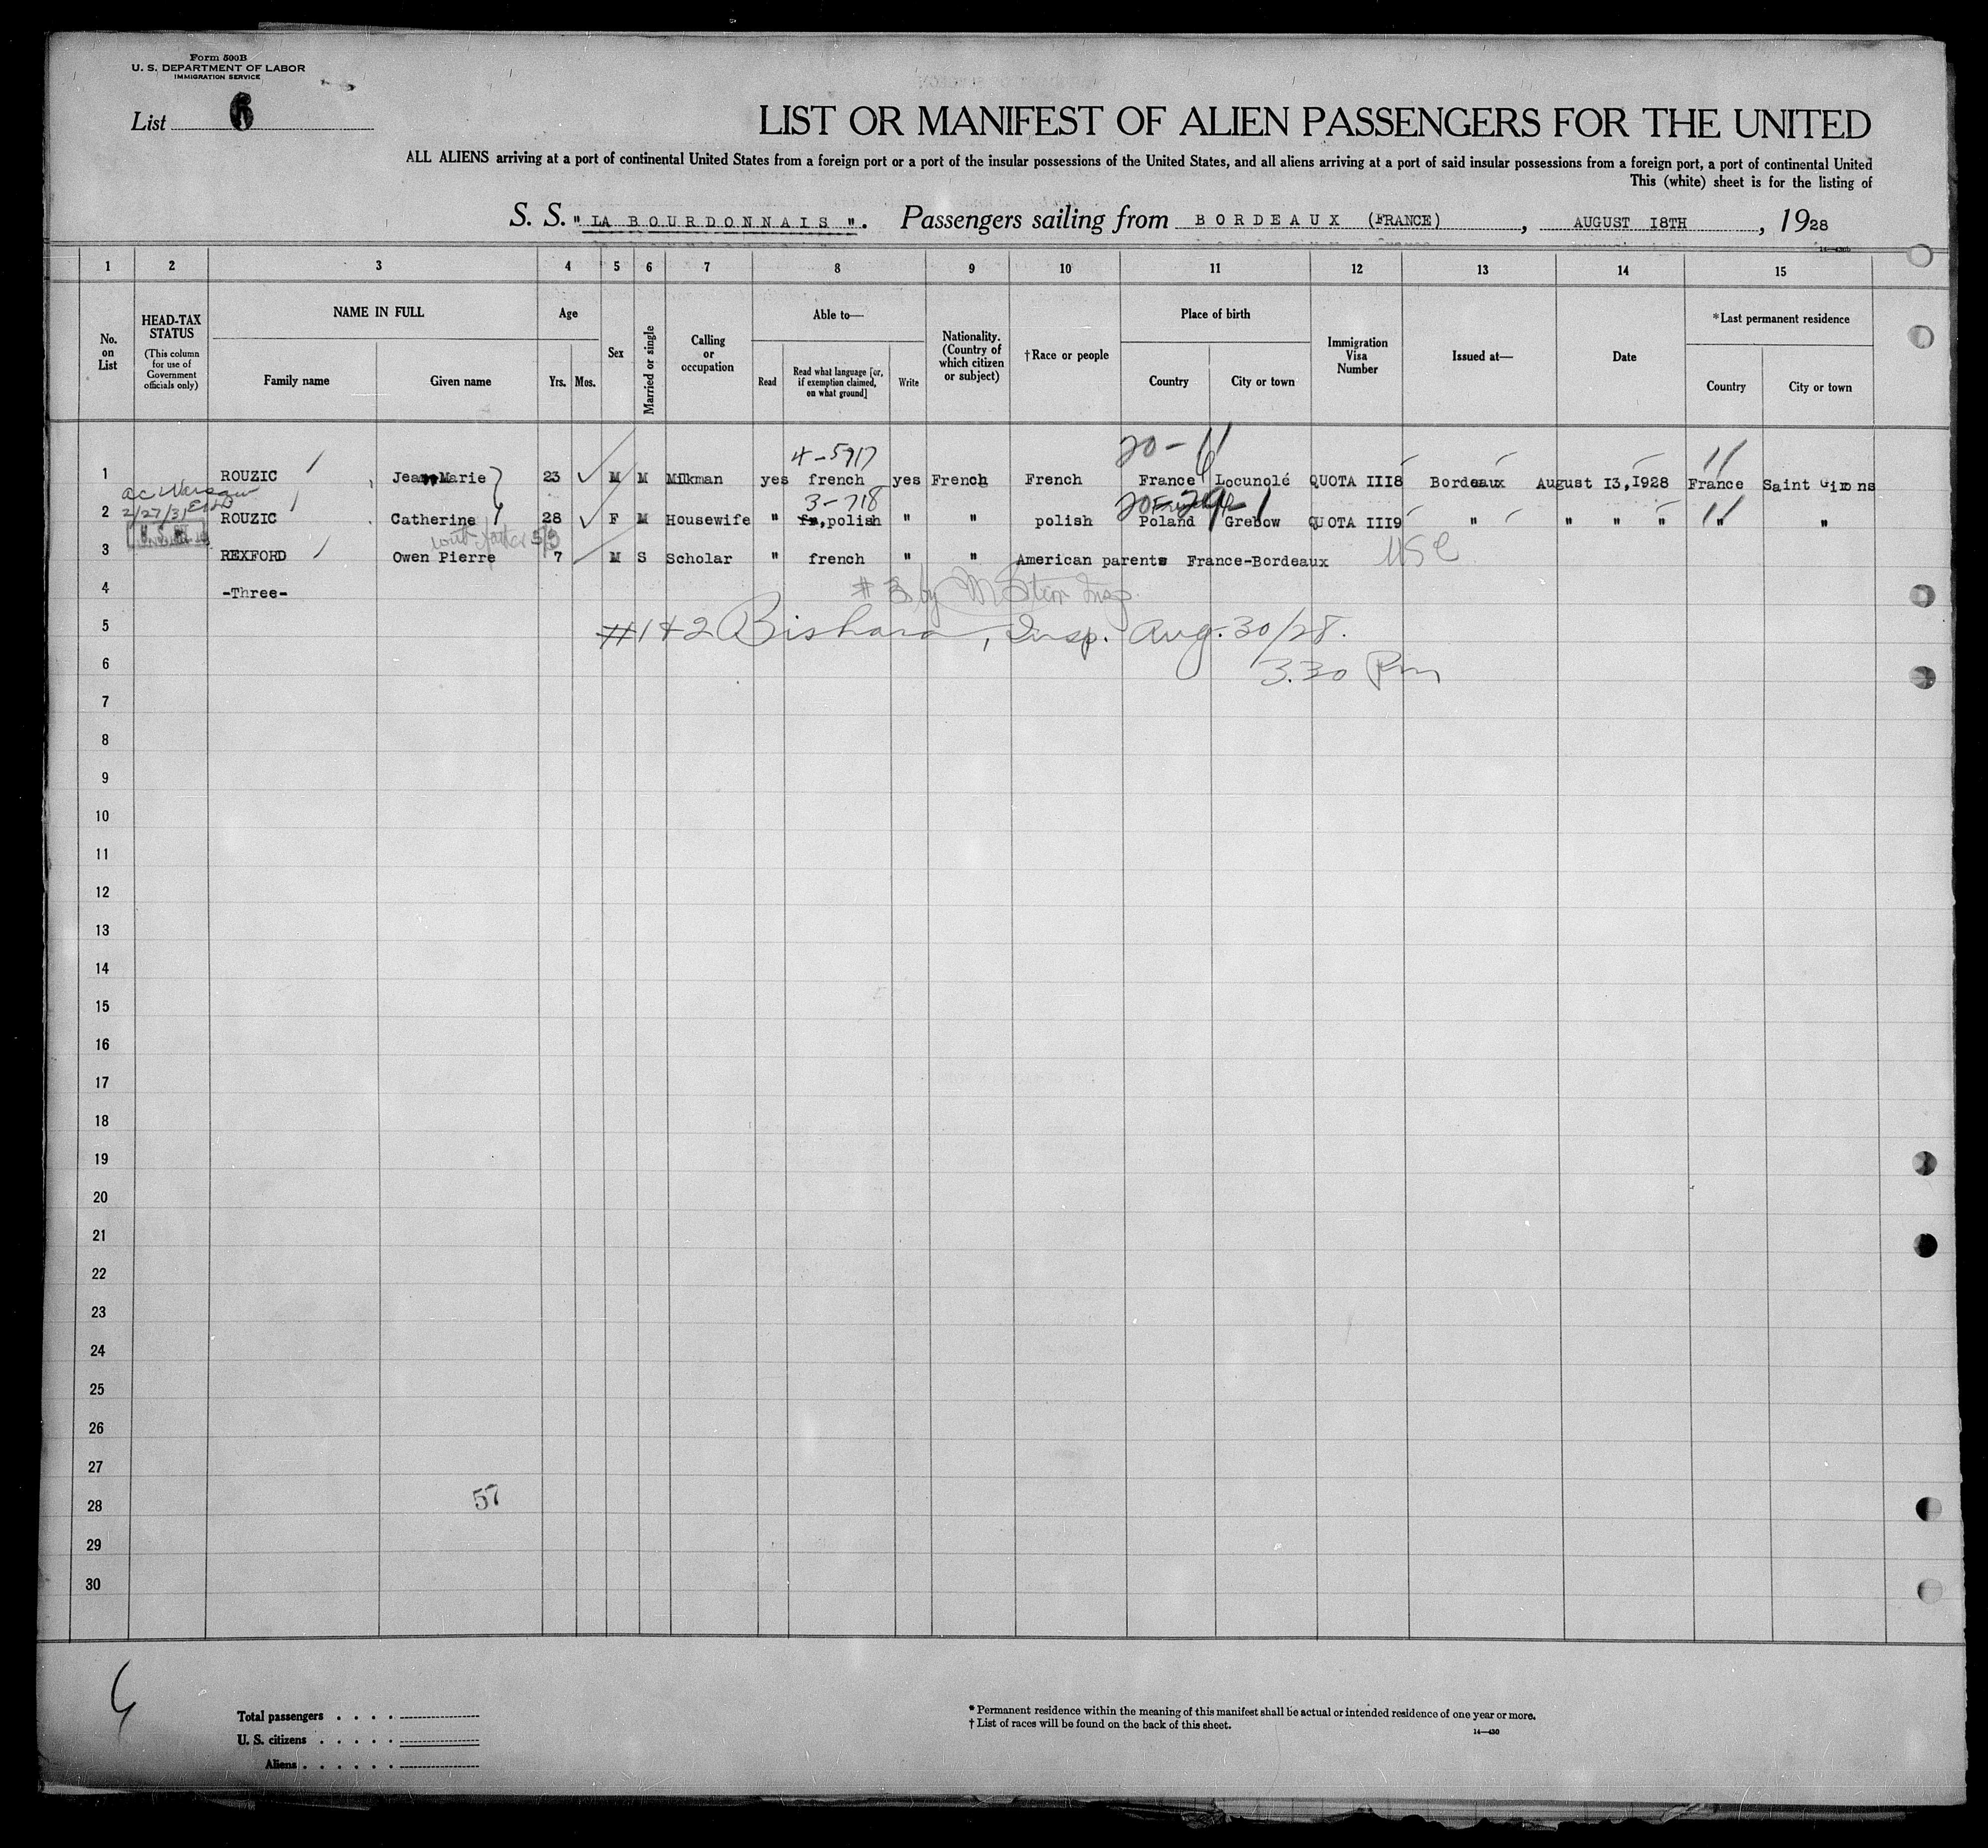 Form 500B
U. S. DEPARTMENT OF LABOR
IMMIGRATION SERVICE
List 6
LIST OR MANIFEST OF ALIEN PASSENGERS FOR THE UNITED
ALL ALIENS arriving at a port of continental United States from a foreign port or a port of the insular possessions of the United States, and all aliens arriving at a port of said insular possessions from a foreign port, a port of continental United
This (white) sheet is for the listing of
S. S. " LA BOURDONNAIS ". Passengers sailing from BORDEAUX (FRANCE), AUGUST I8TH, 1928
1 2 3 4 5 6 7 8 9 10 11 12 13 14 15
No. on List
HEAD-TAX STATUS
(This column for use of Government officials only)
NAME IN FULL
Family name Given name
Age
Yrs. Mos.
Sex
Married or single
Calling or occupation
Able to—
Read Read what language [or, if exemption claimed, on what ground] Write
Nationality. (Country of which citizen or subject)
†Race or people
Place of birth
Country City or town
Immigration Visa Number
Issued at—
Date
*Last permanent residence
Country City or town
4-5917 20-
1 ROUZIC Jean Marie 23 M M Milkman yes french yes French French France Locunolé QUOTA III8 Bordeaux August I3,I928 France Saint Girons
2/27/31
3-718
2 ROUZIC Catherine 28 F M Housewife " polish " " polish Poland Grebow QUOTA III9 " " " " " "
with father
3 REXFORD Owen Pierre 7 M S Scholar " french " " American parents France-Bordeaux USC
4 -Three-
# 3 by Insp.
5 #1+2 Bishara, Insp. Aug. 30/28.
6 3.30 Pm
7
8
9
10
11
12
13
14
15
16
17
18
19
20
21
22
23
24
25
26
27
28 57
29
30
Total passengers . . . .
U. S. citizens . . . . .
Aliens . . . . . .
* Permanent residence within the meaning of this manifest shall be actual or intended residence of one year or more.
† List of races will be found on the back of this sheet.
14—430